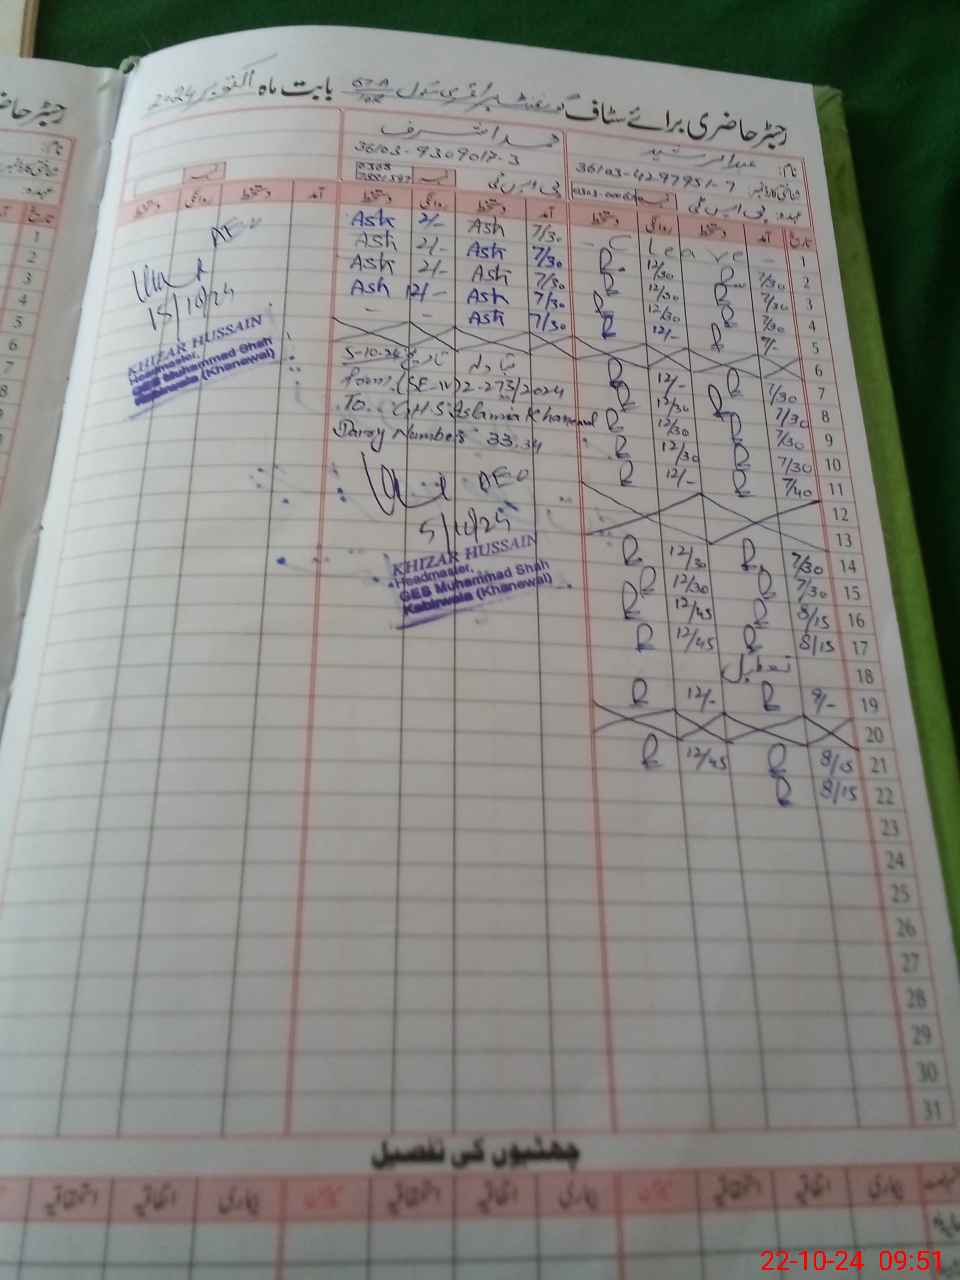 رجسٹر حاضری برائے سٹاف گورنمنٹ پرائمری سکول 67-A/10R بابت ماہ اکتوبر 2024
عبدالرشید
36103-4297951-7
محمد اشرف
36103-9309017-3
تاریخ آمد دستخط روانگی دستخط آمد دستخط روانگی دستخط آمد دستخط روانگی دستخط
1 - C Leave - 7/30 Ash 2/- Ash
2 7/30 R 12/30 R 7/30 Ash 2/- Ash
3 7/30 R 12/30 R 7/30 Ash 2/- Ash
4 7/30 R 12/30 R 7/30 Ash 12/- Ash
5 7/- R 12/- R 7/30 Ash - -
6
7 7/30 R 12/- R
8 7/30 R 12/30 R
9 7/30 R 12/30 R
10 7/30 R 12/30 R
11 7/40 R 12/- R
12
13
14 7/30 R 12/30 R
15 7/30 R 12/30 R
16 8/15 R 12/45 R
17 8/15 R 12/45 R
18 تعطیل
19 9/- R 12/- R
20
21 8/15 R 12/45 R
22 8/15 R
23
24
25
26
27
28
29
30
31
تبادلہ تاریخ 5-10-24
form. (SE-IV) 2-273/2024
To. G.H.S Islamia Khanewal
Dairy Number 33.34
AEO
5/10/24
KHIZAR HUSSAIN
Headmaster,
GES Muhammad Shah
Kabirwala (Khanewal)
AEO
15/10/24
KHIZAR HUSSAIN
Headmaster,
GES Muhammad Shah
Kabirwala (Khanewal)
چھٹیوں کی تفصیل
بیماری اتفاقیہ استحقاقیہ بیماری اتفاقیہ استحقاقیہ بیماری اتفاقیہ استحقاقیہ
رجسٹر حاضری
1
2
3
4
5
6
7
8
9
10
11
12
13
22-10-24 09:51